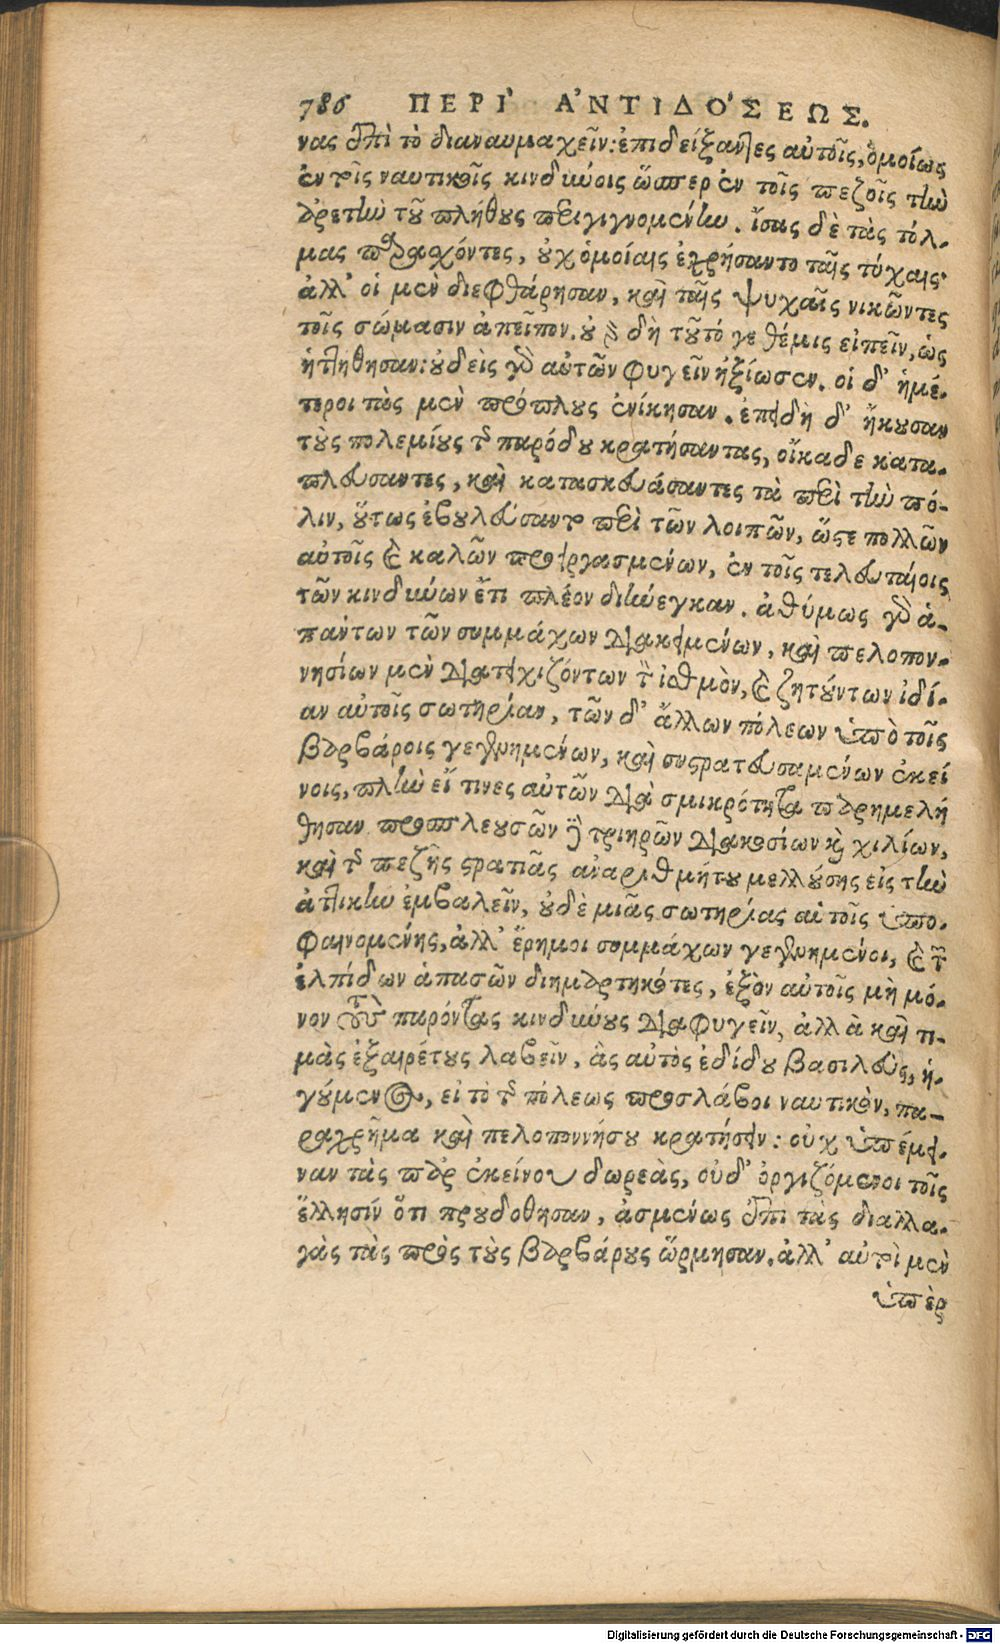 786 ΠΕΡΙ' Α'ΝΤΙΔΟ'ΣΕΩΣ.
νας ἐπὶ τὸ διαναυμαχεῖν: ἐπιδείξαντες αὐτοῖς, ὁμοίως
ἐν τοῖς ναυτικοῖς κινδύνοις ὥσπερ ἐν τοῖς πεζοῖς τὴν
ἀρετὴν τοῦ πλήθους περιγιγνομένην. ἴσας δὲ τὰς τόλ-
μας παρασχόντες, οὐχ ὁμοίαις ἐχρήσαντο ταῖς τύχαις·
ἀλλ' οἱ μὲν διεφθάρησαν, καὶ ταῖς ψυχαῖς νικῶντες
τοῖς σώμασιν ἀπεῖπον. οὐ γὰρ δὴ τοῦτό γε θέμις εἰπεῖν, ὡς
ἡττήθησαν: οὐδεὶς γὰρ αὐτῶν φυγεῖν ἠξίωσεν. οἱ δ' ἡμέ-
τεροι τὰς μὲν πρόπλους ἐνίκησαν. ἐπειδὴ δ' ἤκουσαν
τοὺς πολεμίους τῆς παρόδου κρατήσαντας, οἴκαδε κατα-
πλεύσαντες, καὶ κατασκευάσαντες τὰ περὶ τὴν πό-
λιν, οὕτως ἐβουλεύσαντο περὶ τῶν λοιπῶν, ὥστε πολλῶν
αὐτοῖς καὶ καλῶν προειργασμένων, ἐν τοῖς τελευταίοις
τῶν κινδύνων ἔτι πλέον διήνεγκαν. ἀθύμως γὰρ ἁ-
πάντων τῶν συμμάχων διακειμένων, καὶ πελοπον-
νησίων μὲν διατειχιζόντων τὸν ἰσθμὸν, καὶ ζητούντων ἰδί-
αν αὐτοῖς σωτηρίαν, τῶν δ' ἄλλων πόλεων ὑπὸ τοῖς
βαρβάροις γεγενημένων, καὶ συστρατευσαμένων ἐκεί
νοις, πλὴν εἴ τινες αὐτῶν διὰ σμικρότητα παρημελή
θησαν προσπλευσῶν δὲ τριηρῶν διακοσίων καὶ χιλίων,
καὶ τῆς πεζῆς στρατιᾶς ἀναριθμήτου μελλούσης εἰς τὴν
ἀττικὴν ἐμβαλεῖν, οὐδὲ μιᾶς σωτηρίας αὐτοῖς ὑπο-
φαινομένης, ἀλλ' ἔρημοι συμμάχων γεγενημένοι, καὶ τῶν
ἐλπίδων ἁπασῶν διημαρτηκότες, ἐξὸν αὐτοῖς μὴ μό-
νον τοὺς παρόντας κινδύνους διαφυγεῖν, ἀλλὰ καὶ τι-
μὰς ἐξαιρέτους λαβεῖν, ἃς αὐτὸς ἐδίδου βασιλεὺς, ἡ-
γούμενος, εἰ τὸ τῆς πόλεως προσλάβοι ναυτικὸν, πα-
ραχρῆμα καὶ πελοποννήσου κρατήσειν: οὐχ ὑπέμει-
ναν τὰς παρ' ἐκείνου δωρεὰς, οὐδ' ὀργιζόμενοι τοῖς
ἕλλησίν ὅτι προυδόθησαν, ἀσμένως ἐπὶ τὰς διαλλα-
γὰς τὰς πρὸς τοὺς βαρβάρους ὥρμησαν. ἀλλ' αὐτοὶ μὲν
ὑπὲρ
Digitalisierung gefördert durch die Deutsche Forschungsgemeinschaft - DFG